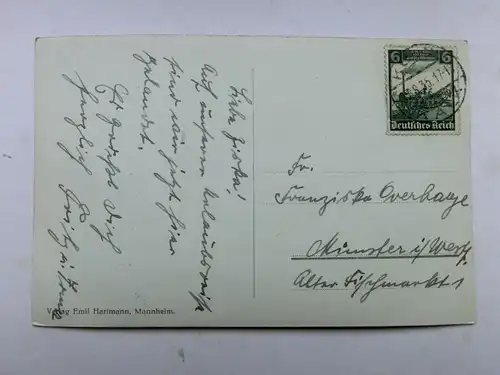 Liebe Ziska!
Auf unserer Urlaubsreise
sind wir jetzt hier
gelandet.
Es grüßt Dich
herzlich
Fr.
Franziska Overhage
Münster i/Westf.
Alter Fischmarkt 1
6 6
Deutsches Reich
Verlag Emil Hartmann, Mannheim.